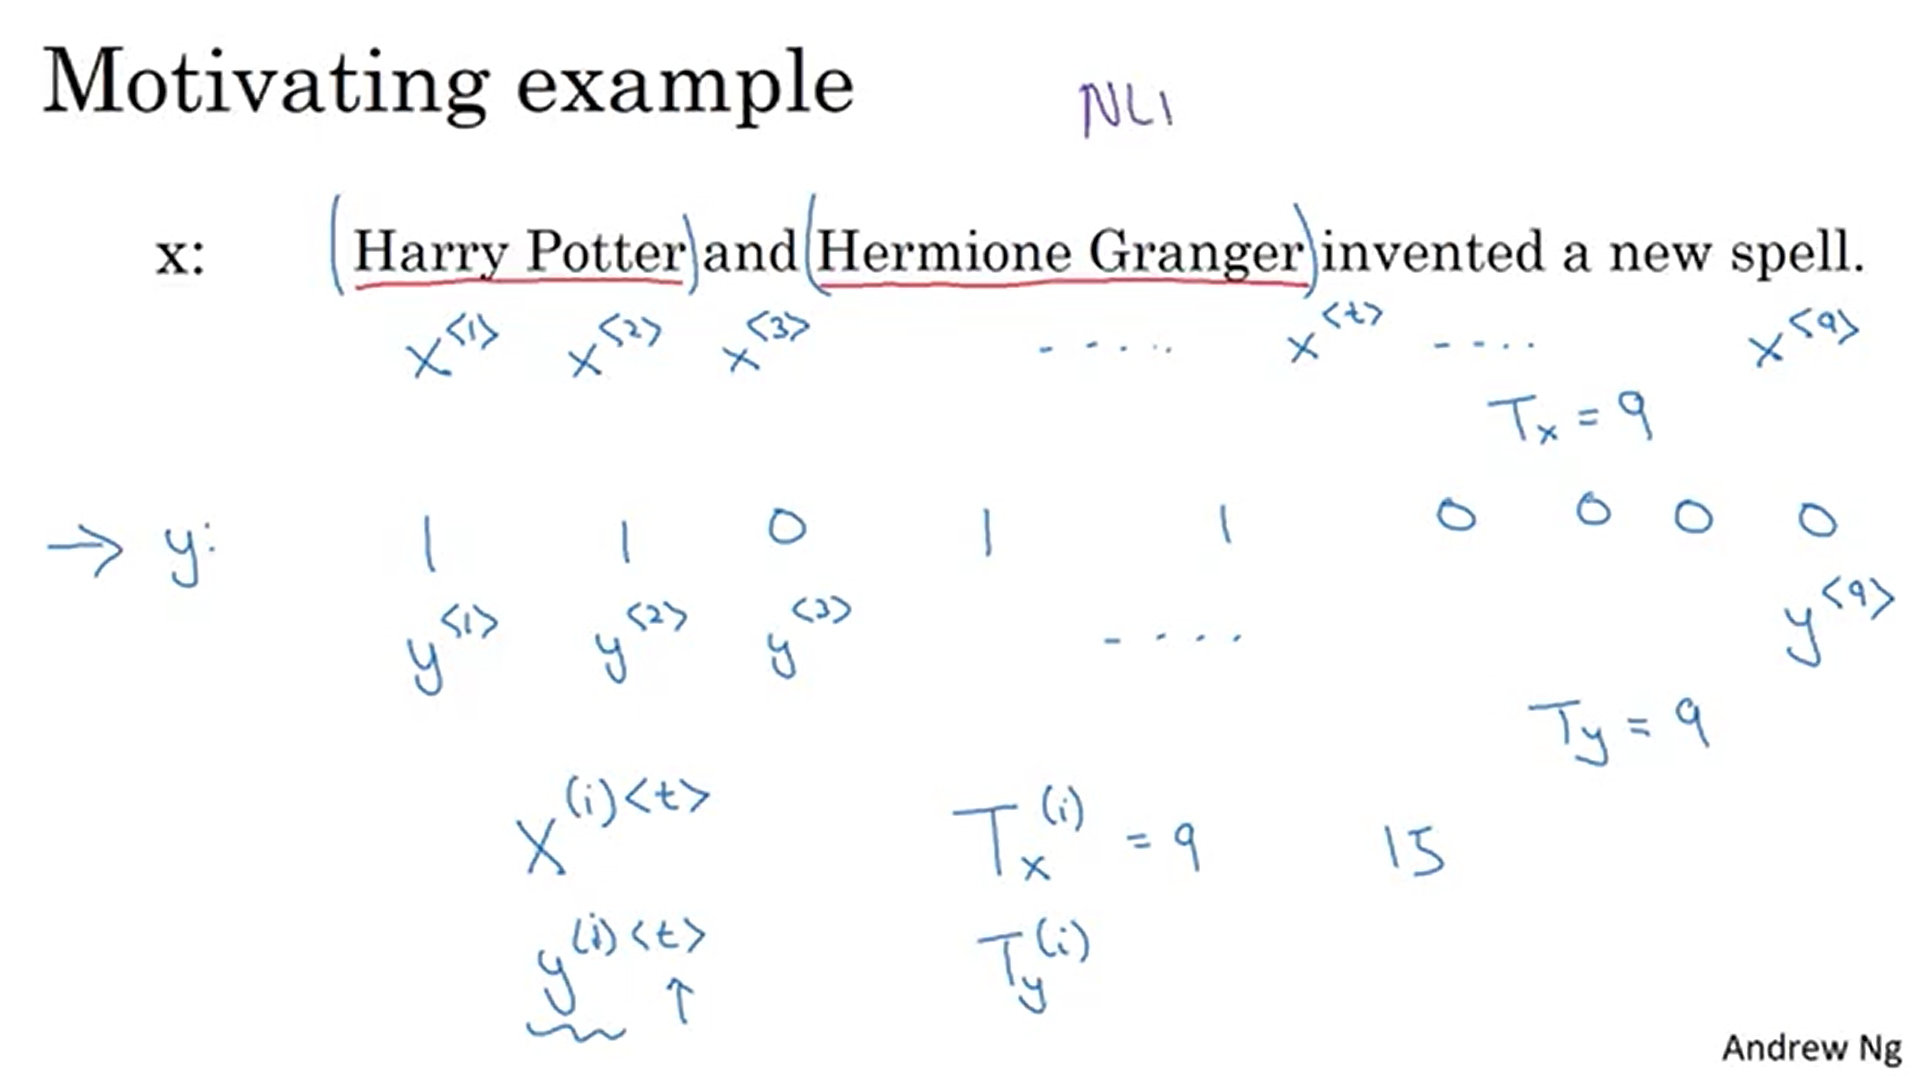 Motivating example
NLI
x: (Harry Potter) and (Hermione Granger) invented a new spell.
x<1> x<2> x<3> ..... x<t> .... x<9>
Tx = 9
→ y: 1 1 0 1 1 0 0 0 0
y<1> y<2> y<3> .... y<9>
Ty = 9
X(i)<t> Tx(i) = 9 15
y(i)<t> Ty(i)
↑
Andrew Ng